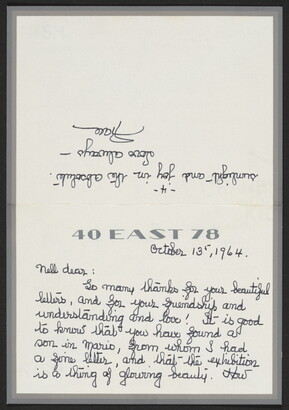 -4-
sunlight and joy in the absolute.
Love always —
Grace
40 EAST 78
October 13, 1964.
Nell dear:
So many thanks for your beautiful
letters, and for your friendship and
understanding and love! It is good
to know that you have found a
son in Mario, from whom I had
a fine letter, and that the exhibition
is a thing of glowing beauty. How